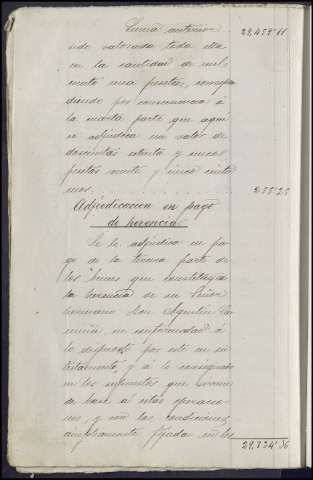 Suma anterior 29,459'11
sido valorada toda ella
en la cantidad de mil
ciento una pesetas, correspon
diendo por consecuencia á
la cuarta parte que aquí
se adjudica un valor de
doscientas setenta y cinco
pesetas veinte y cinco cénti
mos. 275'25
Adjudicacion en pago
de herencia
Se le adjudica en pa
go de la tercera parte de
los bienes que constituyen
la herencia de su Señor
hermano Don Agustin
en conformidad á
lo dispuesto por este en su
testamento, y á lo consignado
en los supuestos que sirven
de base á estas operacio
nes y con las condiciones
ampliamente fijadas en los
29,734'36